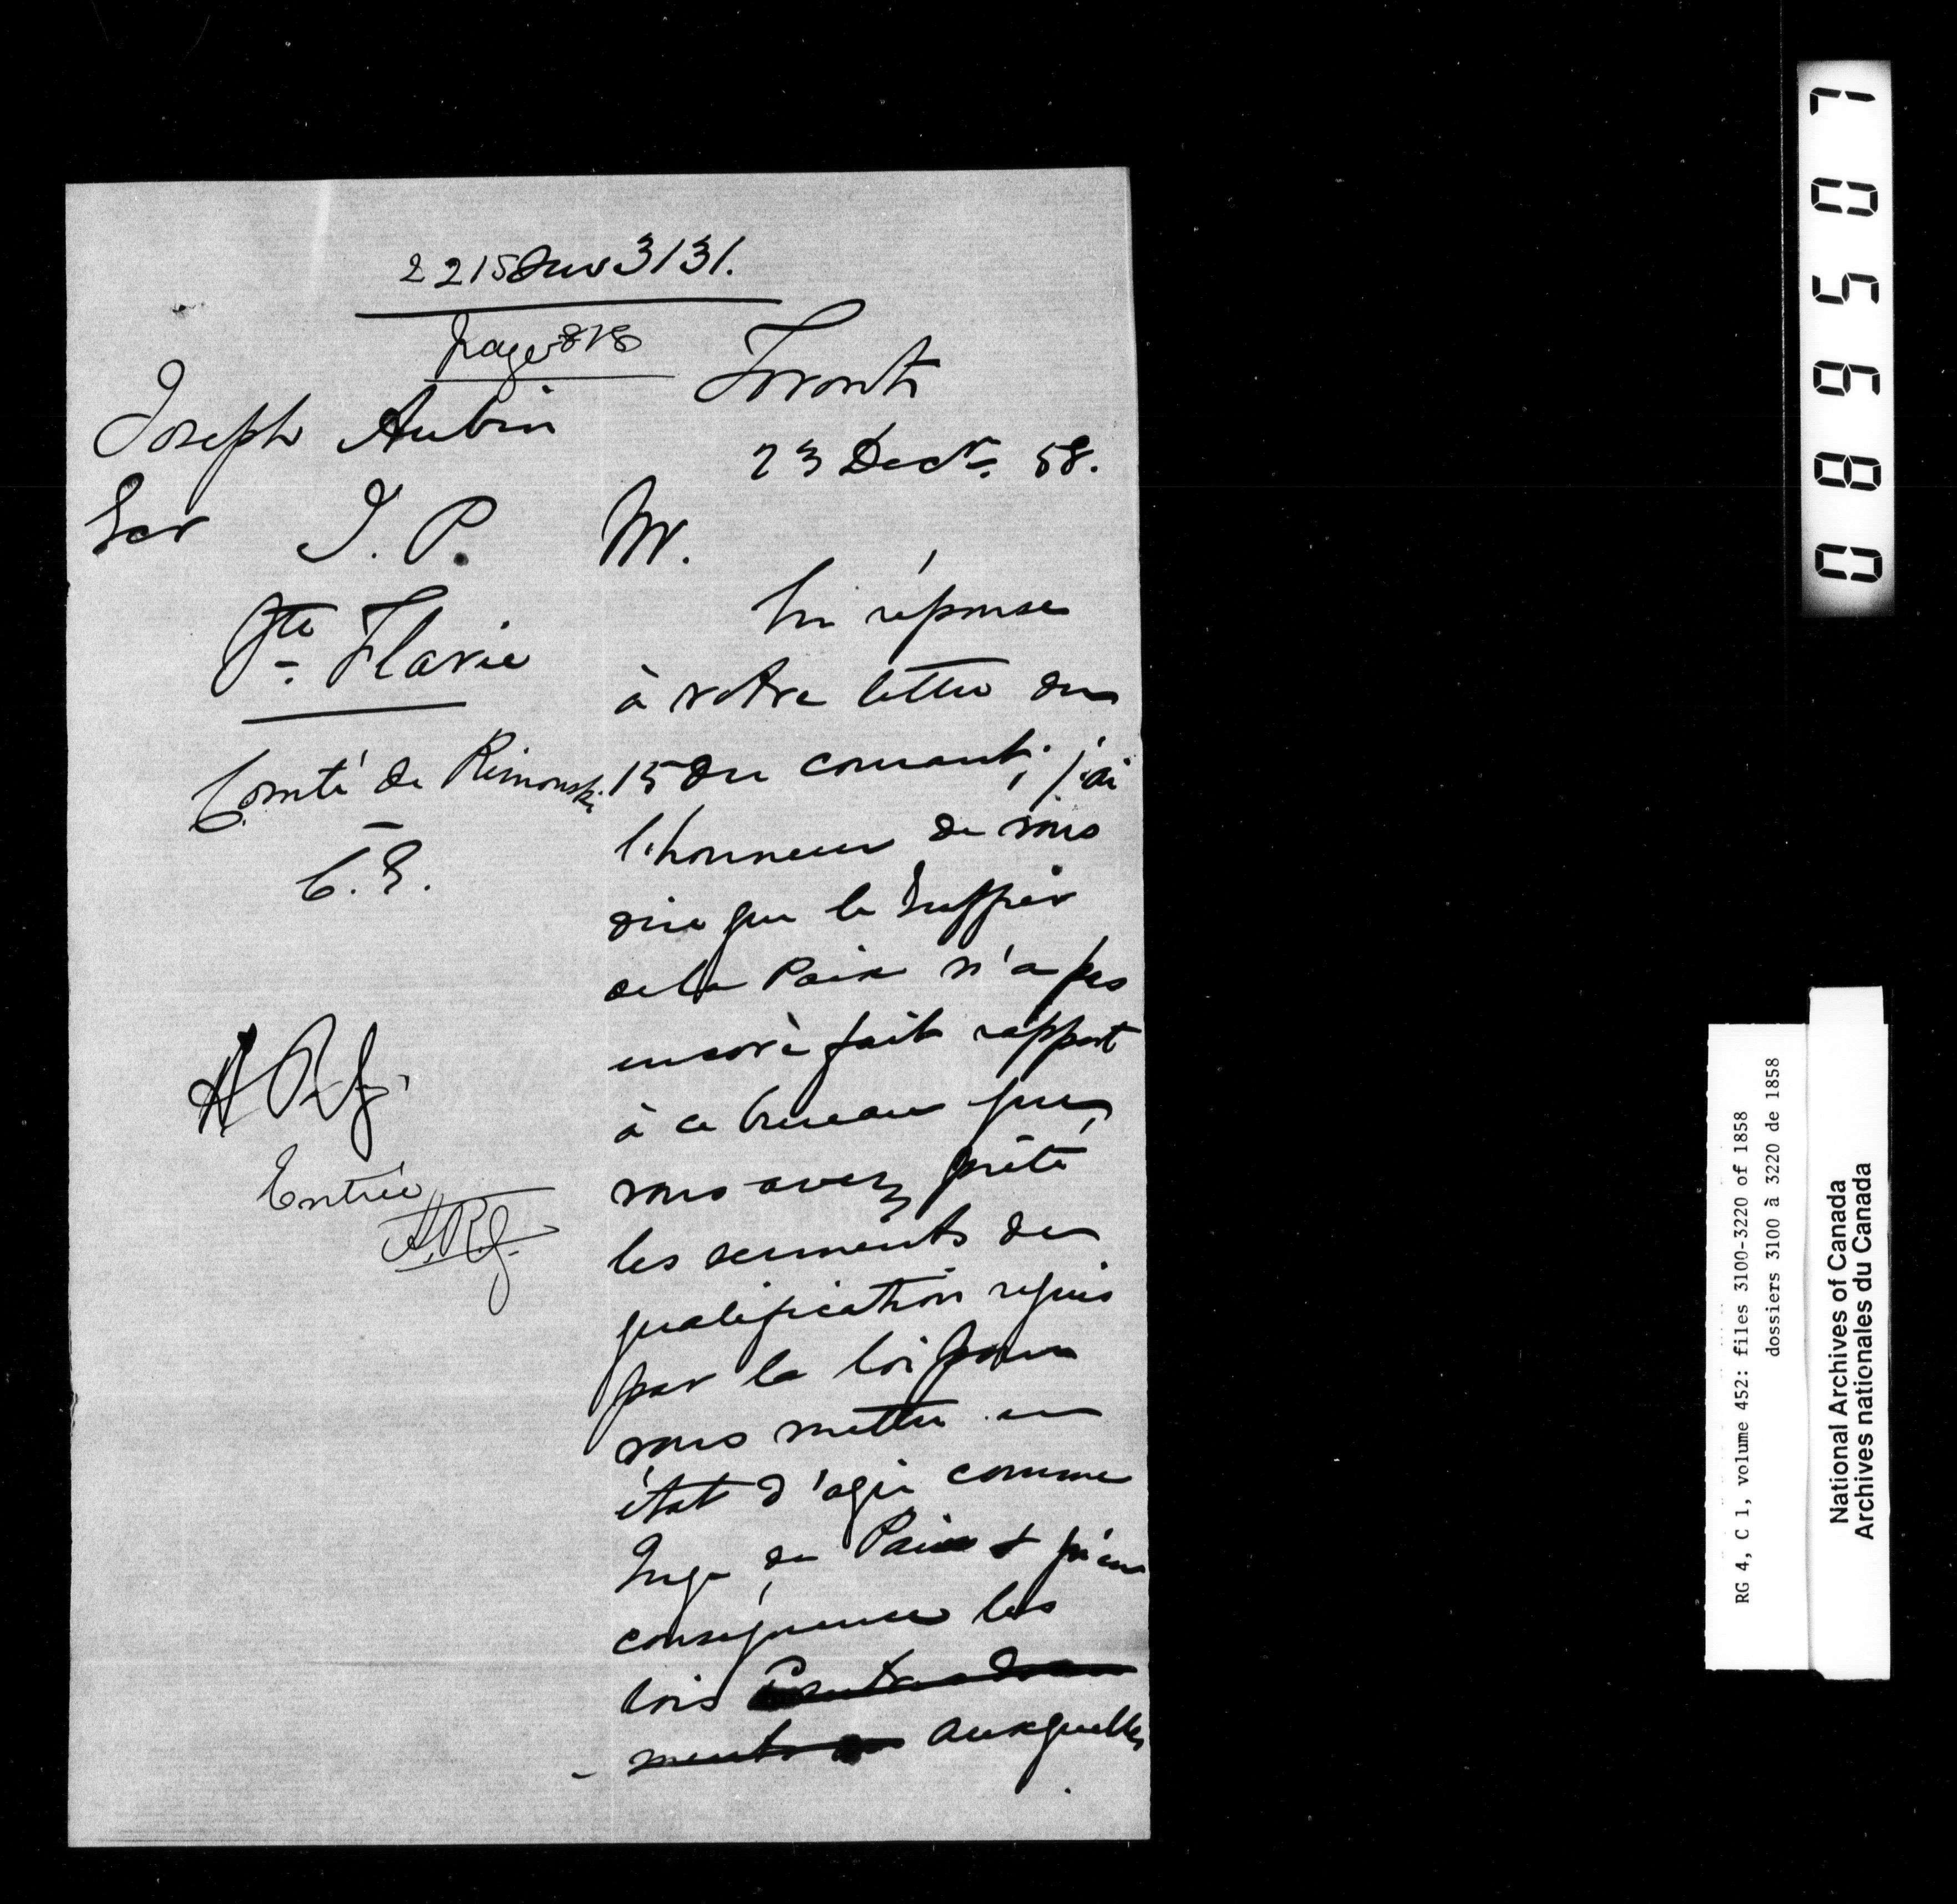 2215 Sur 3131.
page 818
Toronto
23 Decr. 58.
Joseph Aubin
Ecr J. P.
Ste. Flavie
Comté de Rimouski
C. E.
M.
En réponse
à votre lettre du
15 du courant, j'ai
l'honneur de vous
dire que le Greffier
de la Paix n'a pas
encore fait rapport
à ce bureau que
vous avez prêté
les serments de
qualification requis
par la loi pour
vous mettre en
état d'agir comme
Juge de Paix & qu'en
conséquence les
lois
ments auxquelles
Entrée
A.R.
07
05968
RG 4, C 1, volume 452: files 3100-3220 of 1858
dossiers 3100 à 3220 de 1858
National Archives of Canada
Archives nationales du Canada